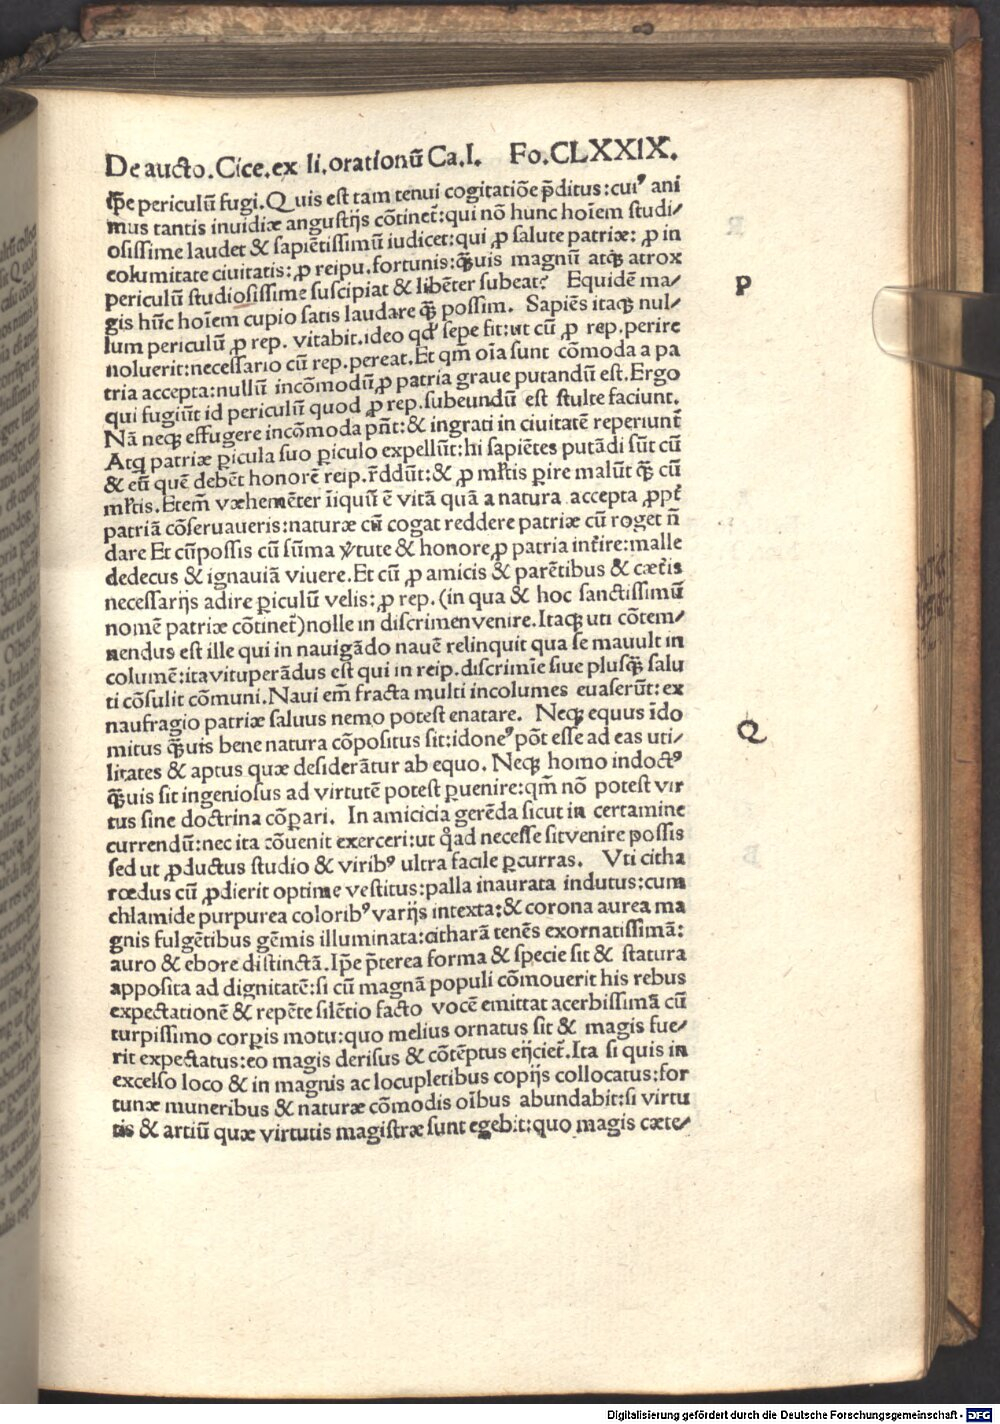 De aucto.Cice.ex li.orationū Ca.I. Fo.CLXXIX.
ip̄e periculū fugi.Quis est tam tenui cogitatiōe p̄ditus:cui⁹ ani
mus tantis inuidiæ angustijs cōtinet᷑:qui nō hunc hoīem studi/
osissime laudet & sapiētissimū iudicet:qui ꝓ salute patriæ: ꝓ in
columitate ciuitatis:ꝓ reipu.fortunis:q̄uis magnū atqȝ atrox
periculū studiosissime suscipiat & libēter subeat? Equidē ma/
gis hūc hoīem cupio satis laudare q̄ȝ possim. Sapiēs itaqȝ nul/
lum periculū ꝓ rep. vitabit.ideo qd̄ sepe fit:ut cū ꝓ rep.perire
noluerit:necessario cū rep.pereat.Et qm̄ oīa sunt cōmoda a pa
tria accepta:nullū incōmodū ꝓ patria graue putandū est.Ergo
qui fugiūt id periculū quod ꝓ rep.subeundū est stulte faciunt.
Nā neqȝ effugere incōmoda pn̄t:& ingrati in ciuitatē reperiunt᷑
Atqȝ patriæ ꝑicula suo ꝑiculo expellūt:hi sapiētes putādi sūt cū
& eū quē debēt honorē reip.r̄ddūt:& ꝓ ml̄tis ꝑire malūt q̄ȝ cū
ml̄tis.Etem̄ væhemēter īiquū ē vitā quā a natura accepta ꝓpt᷑
patriā cōseruaueris:naturæ cū cogat reddere patriæ cū roget n̄
dare Et cūpossis cū sūma v̓tute & honore ꝓ patria int᷑ire:malle
dedecus & ignauiā viuere.Et cū ꝓ amicis & parētibus & cæt᷑is
necessarijs adire ꝑiculū velis:ꝓ rep.(in qua & hoc sanctissimū
nomē patriæ cōtinet᷑)nolle in discrimenvenire.Itaqȝ uti cōtem/
nendus est ille qui in nauigādo nauē relinquit qua se mauult in
columē:itavituperādus est qui in reip.discrimīe siue plusq̄ȝ salu
ti cōsulit cōmuni.Naui em̄ fracta multi incolumes euaserūt:ex
naufragio patriæ saluus nemo potest enatare. Neqȝ equus īdo
mitus q̄ȝuis bene natura cōpositus sit:idone⁹ pōt esse ad eas uti/
litates & aptus quæ desiderātur ab equo. Neqȝ homo indoct⁹
q̄ȝuis sit ingeniosus ad virtutē potest ꝑuenire:qm̄ nō potest vir
tus sine doctrina cōpari. In amicicia gerēda sicut in certamine
currendū:nec ita cōuenit exerceri:ut q̓ad necesse sitvenire possis
sed ut ꝓductus studio & virib⁹ ultra facile ꝑcurras. Vti citha
rœdus cū ꝓdierit optime vestitus:palla inaurata indutus:cum
chlamide purpurea colorib⁹ varijs intexta:& corona aurea ma
gnis fulgētibus gēmis illuminata:citharā tenēs exornatissimā:
auro & ebore distinctā.Ip̄e p̄terea forma & specie sit & statura
apposita ad dignitatē:si cū magnā populi cōmouerit his rebus
expectationē & repēte silētio facto vocē emittat acerbissimā cū
turpissimo corꝑis motu:quo melius ornatus sit & magis fue/
rit expectatus:eo magis derisus & cōtēptus eijciet᷑.Ita si quis in
excelso loco & in magnis ac locupletibus copijs collocatus:for
tunæ muneribus & naturæ cōmodis oībus abundabit:si virtu
tis & artiū quæ virtutis magistræ sunt egebit:quo magis cæte/
P
Q
Digitalisierung gefördert durch die Deutsche Forschungsgemeinschaft - DFG